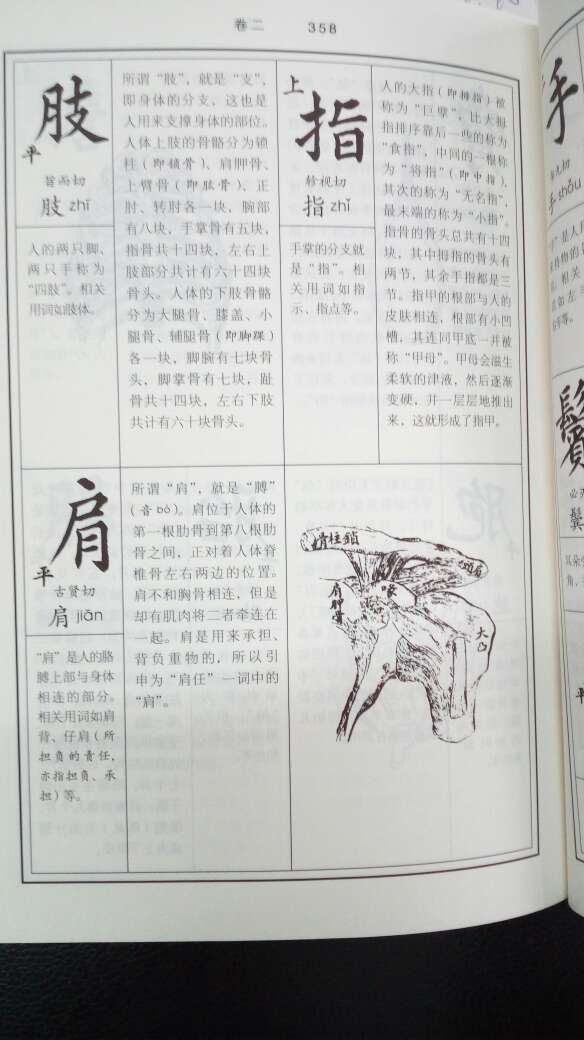 卷二 358
肢
平
旨而切
肢 zhī
人的两只脚、
两只手称为
“四肢”。相关
用词如肢体。
所谓“肢”，就是“支”，
即身体的分支，这也是
人用来支撑身体的部位。
人体上肢的骨骼分为锁
柱（即锁骨）、肩胛骨、
上臂骨（即肱骨）、正
肘、转肘各一块，腕部
有八块，手掌骨有五块，
指骨共十四块，左右上
肢部分共计有六十四块
骨头。人体的下肢骨骼
分为大腿骨、膝盖、小
腿骨、辅腿骨（即脚踝）
各一块，脚腕有七块骨
头，脚掌骨有七块，趾
骨共十四块，左右下肢
共计有六十块骨头。
上
指
轸视切
指 zhǐ
手掌的分支就
是“指”。相
关用词如指
示、指点等。
人的大指（即拇指）被
称为“巨擘”，比大拇
指排序靠后一些的称为
“食指”，中间的一根称
为“将指”（即中指），
其次的称为“无名指”，
最末端的称为“小指”。
指骨的骨头总共有十四
块，其中拇指的骨头有
两节，其余手指都是三
节。指甲的根部与人的
皮肤相连，根部有小凹
槽，其连同甲底一并被
称“甲母”。甲母会滋生
柔软的津液，然后逐渐
变硬，并一层层地推出
来，这就形成了指甲。
肩
平
古贤切
肩 jiān
“肩”是人的胳
膊上部与身体
相连的部分。
相关用词如肩
背、仔肩（所
担负的责任，
亦指担负、承
担）等。
所谓“肩”，就是“膊”
（音bó）。肩位于人体的
第一根肋骨到第八根肋
骨之间，正对着人体脊
椎骨左右两边的位置。
肩不和胸骨相连，但是
却有肌肉将二者牵连在
一起。肩是用来承担、
背负重物的，所以引
申为“肩任”一词中的
“肩”。
柱鎖
肩胛骨
大凸
手
手 shǒu
鬓